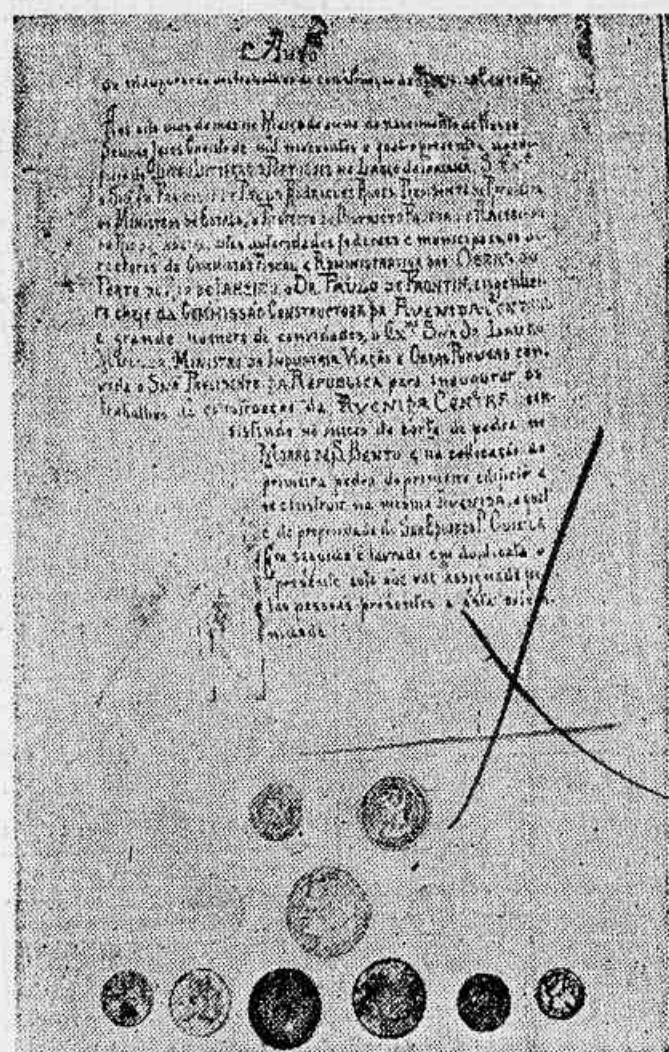 Auto
da inauguração dos trabalhos de construcção da Avenida Central
Aos oito dias do mez de Março do anno do nascimento de Nosso
Senhor Jesus Christo de mil novecentos e quatro presentes no
do no Largo da S. Exª
o Snr Dr. Francisco de Paula Rodrigues Alves, Presidente da Republica
os Ministros de Estado, o Prefeito do Districto Federal
altas autoridades federaes e municipaes, os Di-
rectores da Commissão Fiscal e Administrativa das Obras do
Porto do Rio de Janeiro, o Dr. Paulo de Frontin, engenhei-
ro chefe da Commissão Constructora da Avenida Central
e grande numero de convidados, o Exmo Snr Dr Lauro
Ministro da Industria Viação e Obras Publicas con-
vida o Snr Presidente da Republica para inaugurar os
trabalhos de construcção da Avenida Central con-
sistindo no inicio do corte de pedra no
Morro de S. Bento e na collocação da
primeira pedra do primeiro edificio a
se construir na mesma Avenida, o qual
é de propriedade do Snr Eduardo P. Guinle
Em seguida é lavrado em duplicata o
presente auto que vae assignado pe-
las pessoas presentes a esta solem-
nidade